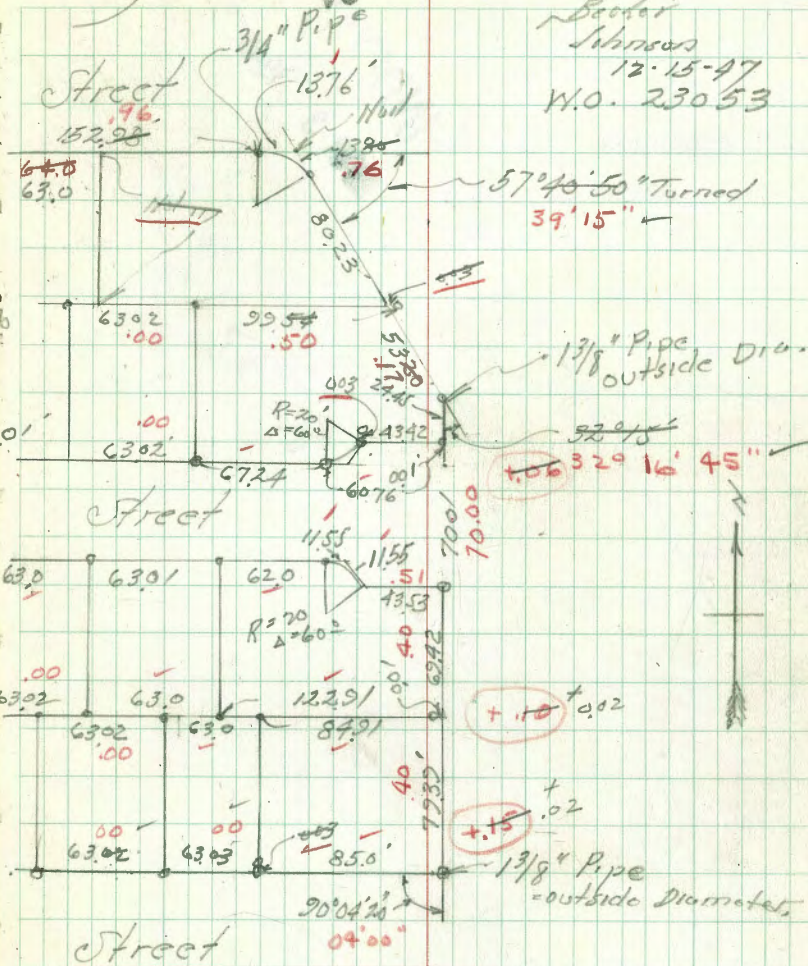 Becker
Johnson
12-15-47
W.O. 23053
3/4" Pipe
13.76'
Nail
Street
.96
152.98
13.80
.76
64.0
63.0
57°40'50" Turned
39'15"
80.23
.03
63.02
.00
99.54
.50
1 3/8" Pipe
outside Dia.
53.20
.17
24.45
.03
R=20'
Δ=60°
43.42
32°15'
+.06 32° 16' 45"
.00
63.02
67.24
60.76
.01
Street
70.01
70.00
11.55
11.55
63.0
63.01
62.0
.51
43.53
R=20
Δ=60°
.40
69.42
.00
63.02
63.0
122.91
0.1'
+.10 +0.02
63.02
63.0
84.91
.00
.40
79.39'
+.15 +.02
.00
.00
63.02
63.03
.03
85.0'
1 3/8" Pipe
=outside Diameter.
90°04'20"
04'00"
Street